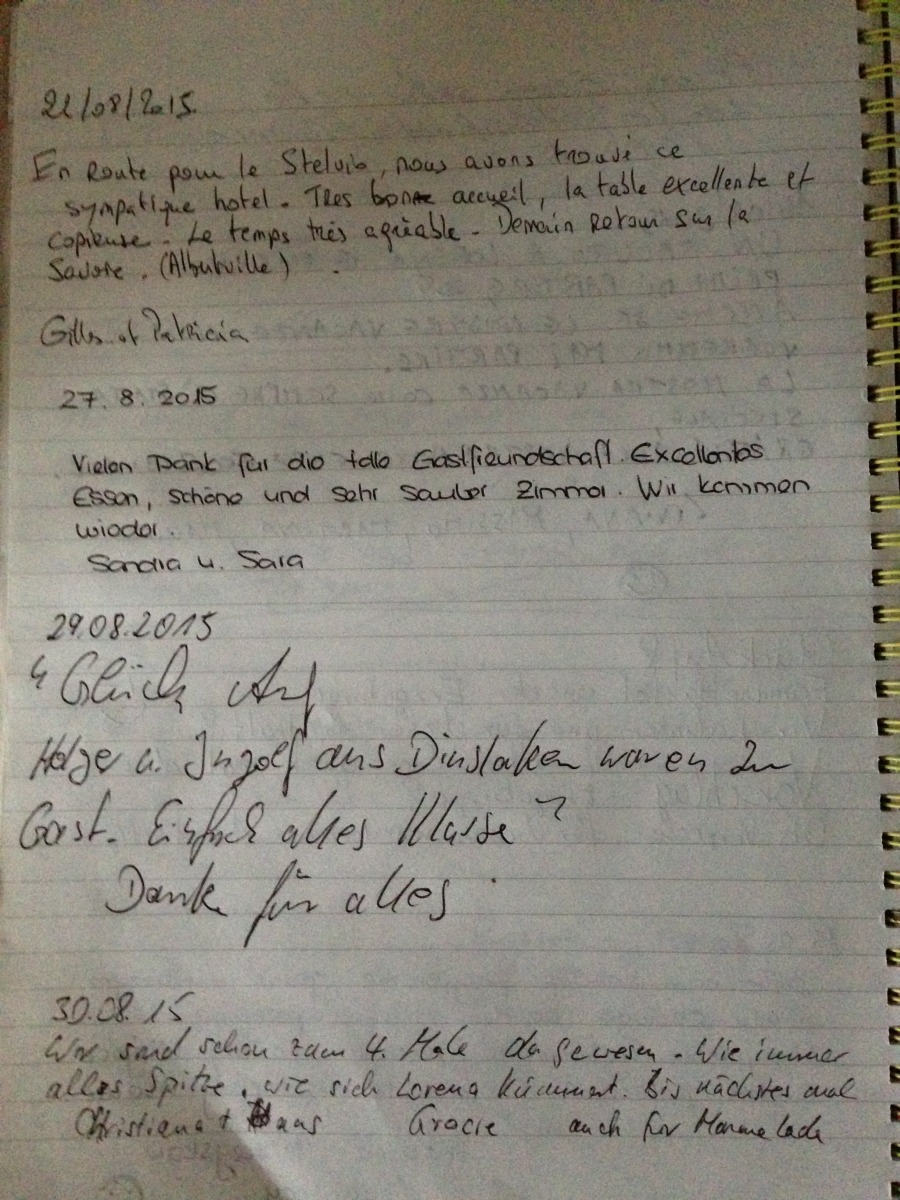 21/08/2015.
En Route pour le Stelvio, nous avons trouvé ce
sympatique hotel. Tres bonne accueil, la table excellente et
copieuse. Le temps très agréable. Demain Retour sur la
Savoie. (Albertville)
Gilles et Patricia
27. 8. 2015
Vielen Dank für die tolle Gastfreundschaft. Excellentes
Essen, schöne und sehr sauber Zimmer. Wir kommen
wieder.
Sandra u. Sara
29.08.2015
"Glück Auf
Helge u. Ingolf aus Dinslaken waren zu
Gast. Einfach alles Klasse
Dank für alles
30.08.15
Wir sind schon zum 4. Male da gewesen. Wie immer
alles Spitze, wie sich Lorena kümmert. Bis nächstes mal
Christiana + Hans Gracie auch für Marmelade